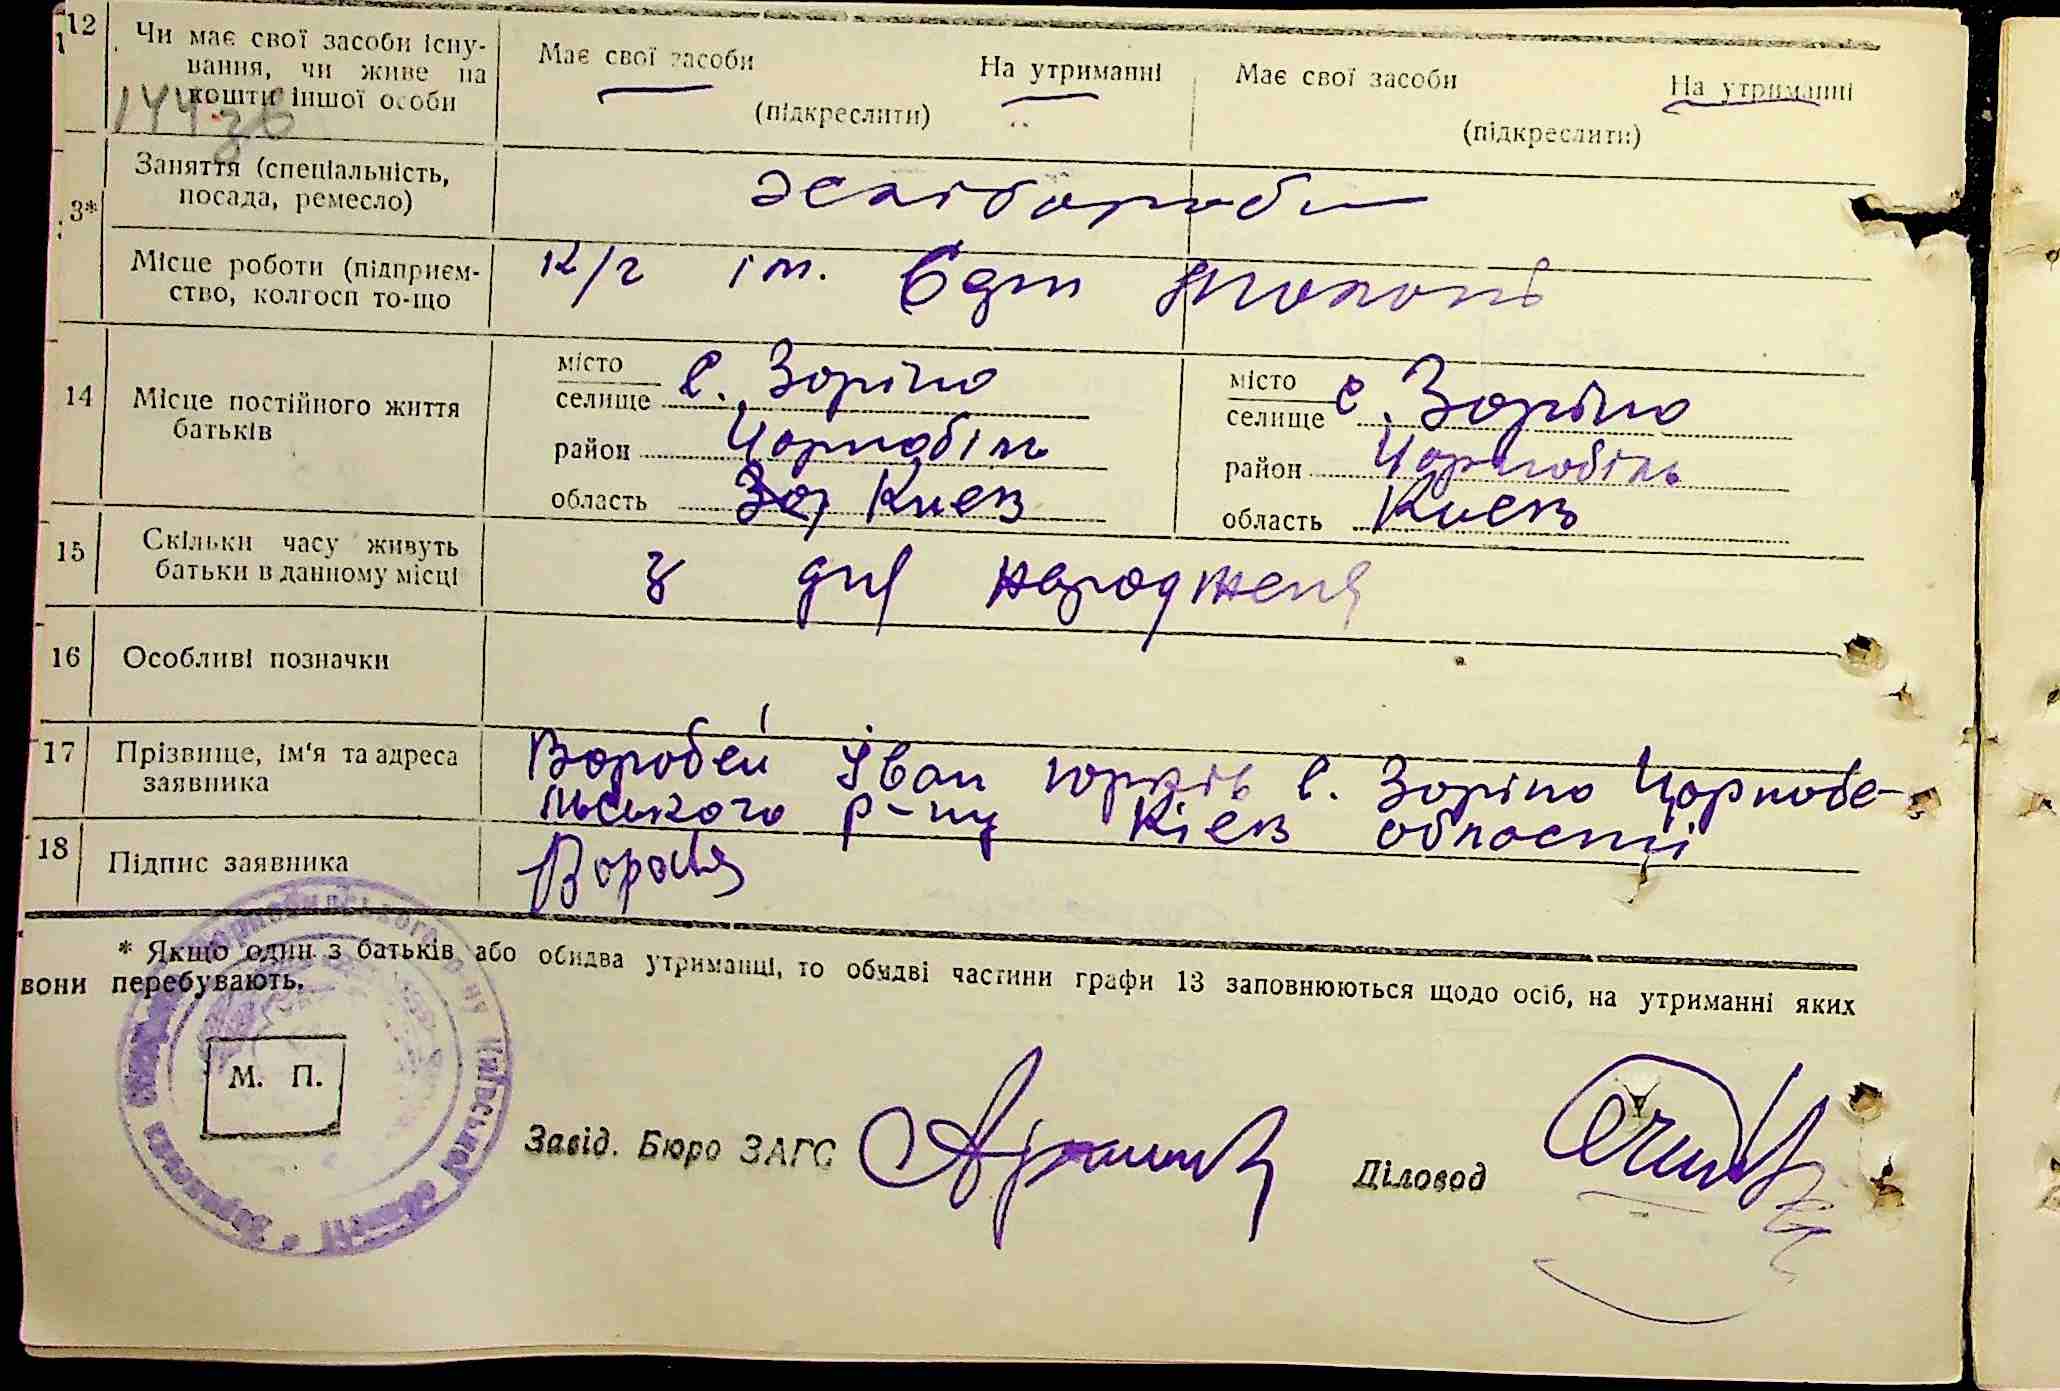 12 Чи має свої засоби існу-
вання, чи живе на
кошти іншої особи
Має свої засоби На утриманні
(підкреслити)
Має свої засоби На утриманні
(підкреслити)
144 зв
3* Заняття (спеціальність,
посада, ремесло)
хліборобы
Місце роботи (підприєм-
ство, колгосп то-що
к/г ім.
14 Місце постійного життя
батьків
місто
селище с. Зоріно
район Чорнобіль
область Киев
місто
селище с. Зоріно
район Чорнобіль
область Киев
15 Скільки часу живуть
батьки в данному місці
з дня народженя
16 Особливі позначки
17 Прізвище, ім'я та адреса
заявника
Воробей Іван с. Зоріно Чорнобе-
льського р-ну Кієв области
18 Підпис заявника
* Якщо один з батьків або обидва утриманці, то обидві частини графи 13 заповнюються щодо осіб, на утриманні яких
вони перебувають.
М. П.
Завід. Бюро ЗАГС
Діловод